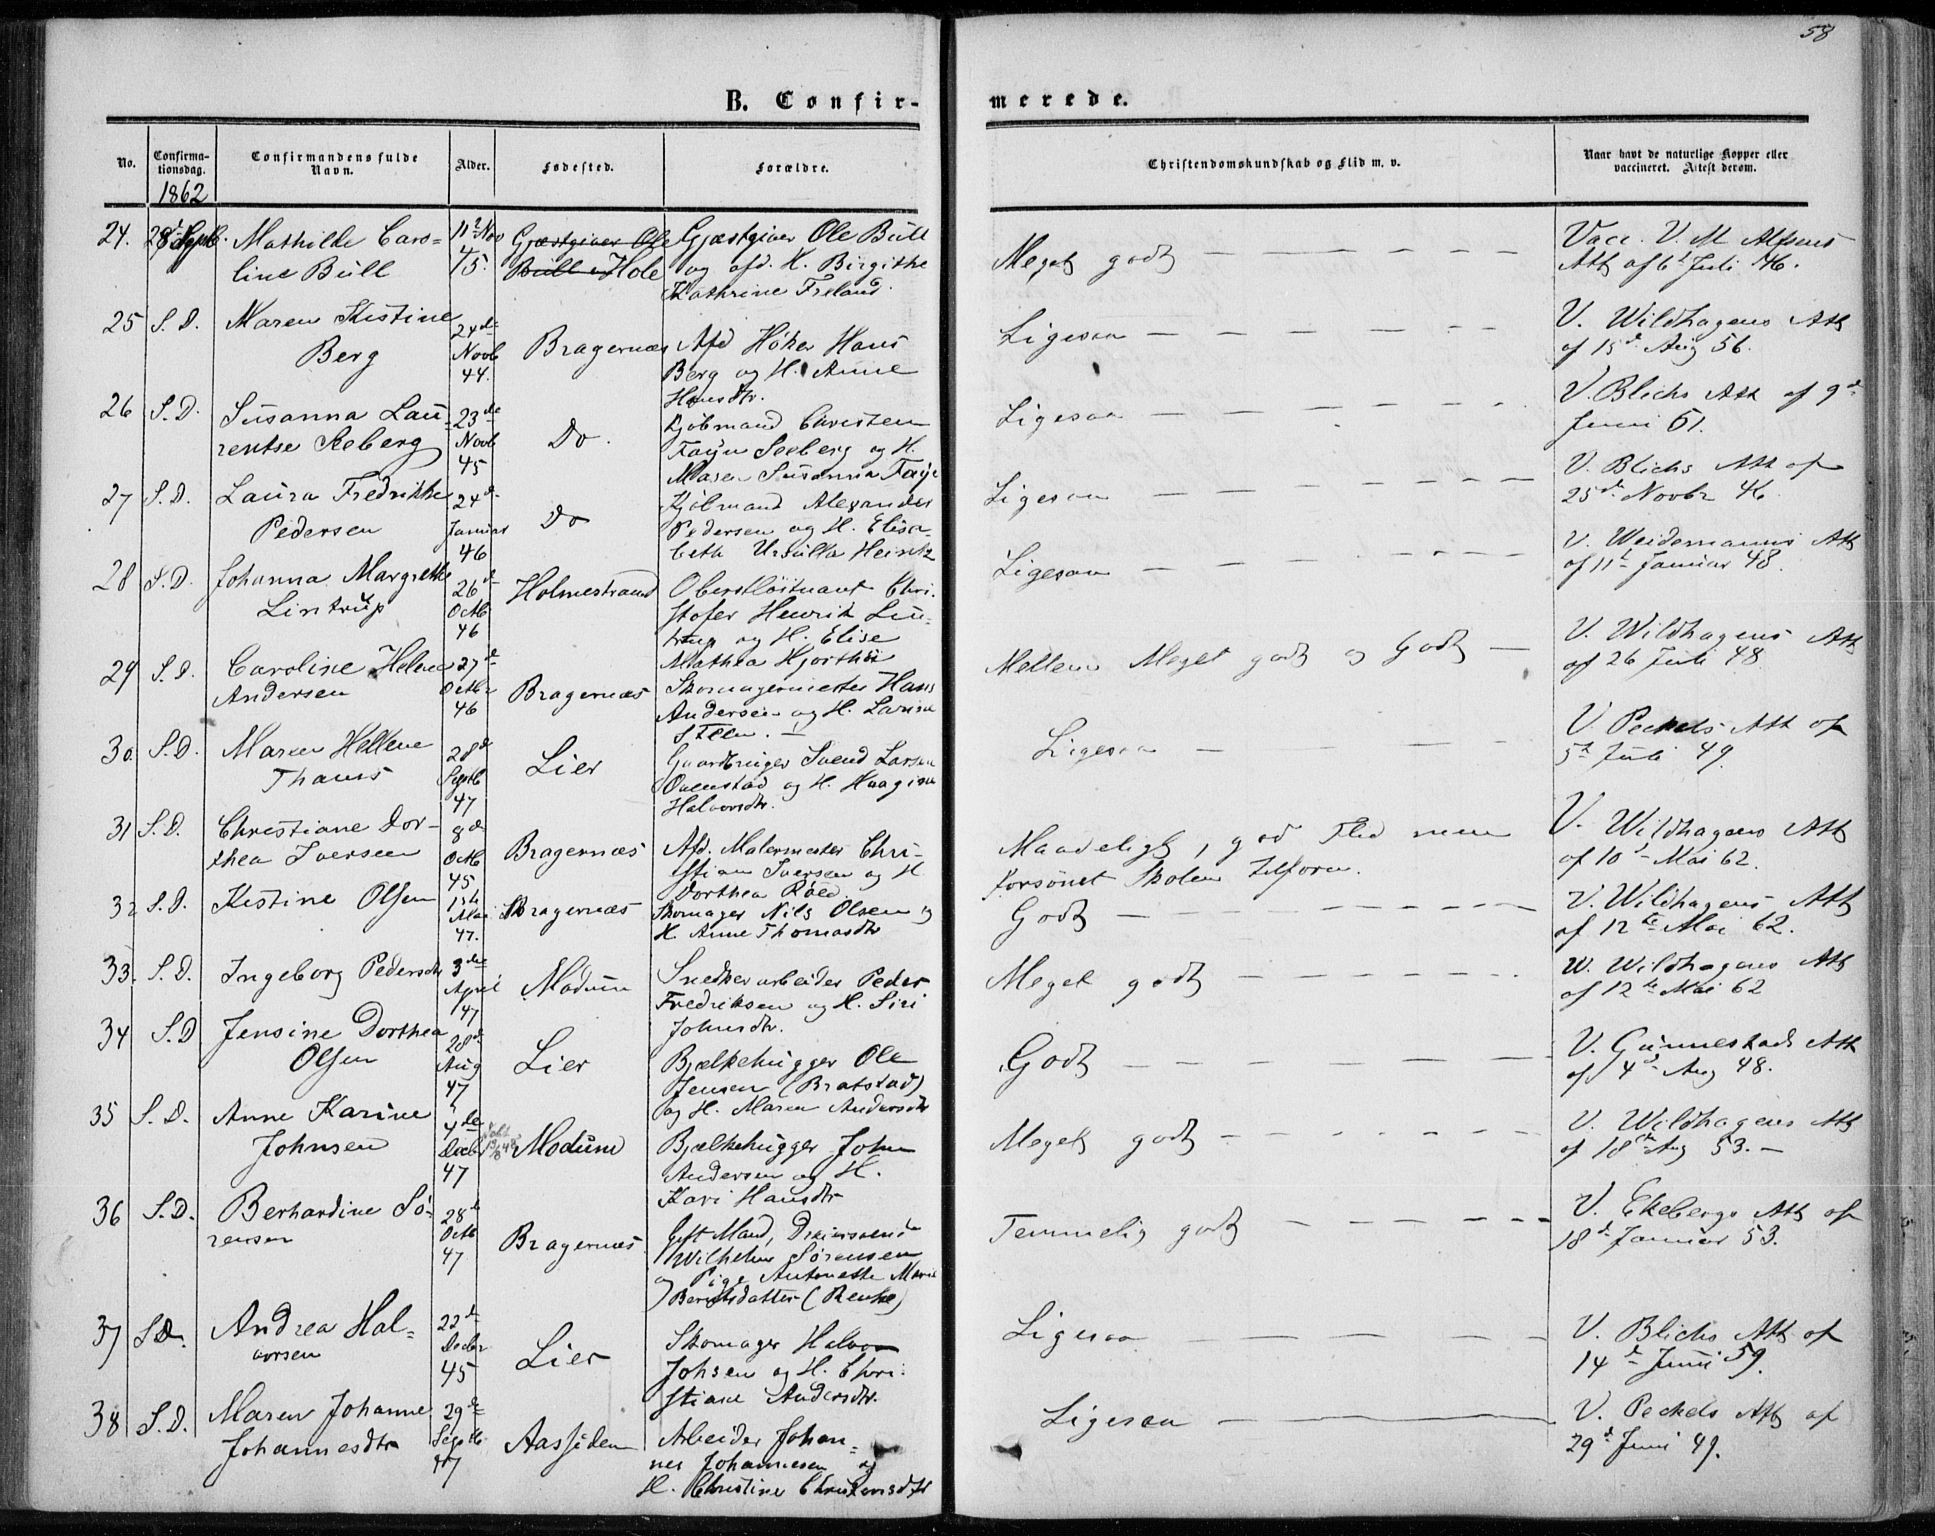 58
B. Confir-
merede.
No.
Confirma-
tionsdag.
1862
Confirmandens fulde
Navn.
Alder.
Fødested.
Forældre.
Christendomskundskab og Flid m. v.
Naar havt de naturlige Kopper eller
vaccineret. Attest derom.
24. 28 Septb. Mathilde Caro-
line Bull
11 Nov
45.
Gjæstgiver Ole
Bull Hole
Gjæstgiver Ole Bull
og afd. H. Birgithe
Kathrine Freland.
Meget godt
Vacc. V. M Alsens
Att af 6t Juli 46.
25 S. D. Maren Kistine
Berg
24de
Novb
44.
Bragernæs
Afd Høker Hans
Berg og H. Anne
Hansdtr.
Ligesaa
V. Wildhagens Att
af 15d Aug 56.
26 S. D. Susanna Lau-
rentse Seeberg
23de
Novb
45
Do.
Kjøbmand Christen
Faye Seeberg og H.
Maren Susanna Faye
Ligesaa
V. Blichs Att af 9d
Juni 61.
27 S. D. Laura Fredrikke
Pedersen
24d
Januar
46
Do
Kjøbmand Alexander
Pedersen og H. Elisa-
beth Ursulla Heintz
Ligesaa
V. Blichs Att af
25d Novbr 46
28 S. D. Johanna Margrethe
Lintrup
26d
Octb
46
Holmestrand
Oberstløitnant Chri-
stofer Henrik Lin-
trup og H. Elise
Mathea Hjorthøi
Ligesaa
V. Weidemanns Att
af 11t Januar 48.
29 S. D. Caroline Helene
Andersen
27d
Octbr
46
Bragernæs
Skomagermester Hans
Andersen og H. Larine
Steen.
Mellem Meget godt og Godt
V. Wildhagens Att
af 26 Juli 48
30 S. D. Maren Hellene
Thams
28d
Septb
47
Lier
Gaardbruger Svend Larsen
Ovenstad og H. Haagine
Halvorsdtr.
Ligesaa
V Peckels Att af
5t Juli 49.
31 S. D. Christiane Dor-
thea Iversen
8d
Octb
45
Bragernæs
Afd. Malermester Chri-
stian Iversen og H
Dorthea Röed
Maadeligt, god Flid men
forsömt Skolen tilforn.
V. Wildhagens Att
af 10d Mai 62.
32 S. D. Kistine Olsen
15t
Mai
47.
Bragernæs
Skomager Nils Olsen og
H. Anne Thomasdtr
Godt
V. Wildhagens Att
af 12te Mai 62.
33. S. D. Ingeborg Pedersdtr
3die
April
47
Modum
Snedkerarbeider Peder
Fredriksen og H. Siri
Johnsdtr.
Meget godt
V. Wildhagens Att
af 12te Mai 62
34 S. D Jensine Dorthea
Olsen
28d
Aug
47
Lier
Bjælkehugger Ole
Jensen (Bratstad)
og H. Maren Andersdtr
Godt
V. Gunnestads Att
af 4d Aug 48.
35 S. D. Anne Karine
Johnsen
4de
Decb
47
Modum
Bjælkehugger John
Andersen og H.
Kari Hansdtr
Meget godt
V. Wildhagens Att
af 18d Aug 53.
36 S. D. Berhardine Sö-
rensen
28d
Octb
47
Bragernæs
Gift Mand, Dreiersvend
Wilhelm Sørensen
og Pige Antonette Marie
Berntsdatter
Temmelig godt
V. Ekebergs Att af
18d Januar 53.
37 S. D. Andrea Hal-
vorsen
22d
Decbr
45
Lier
Skomager Halvor
Johsen og H. Chri-
stiane Andersdtr.
Ligesaa
V. Blichs Att af
14d Juni 59.
38 S. D. Maren Johanne
Johannesdtr
29d
Septb
47
Aassiden
Arbeider Johan-
nes Johannesen og
H. Christine Christensdtr
Ligesaa
V. Peckels Att af
29d Juni 49.